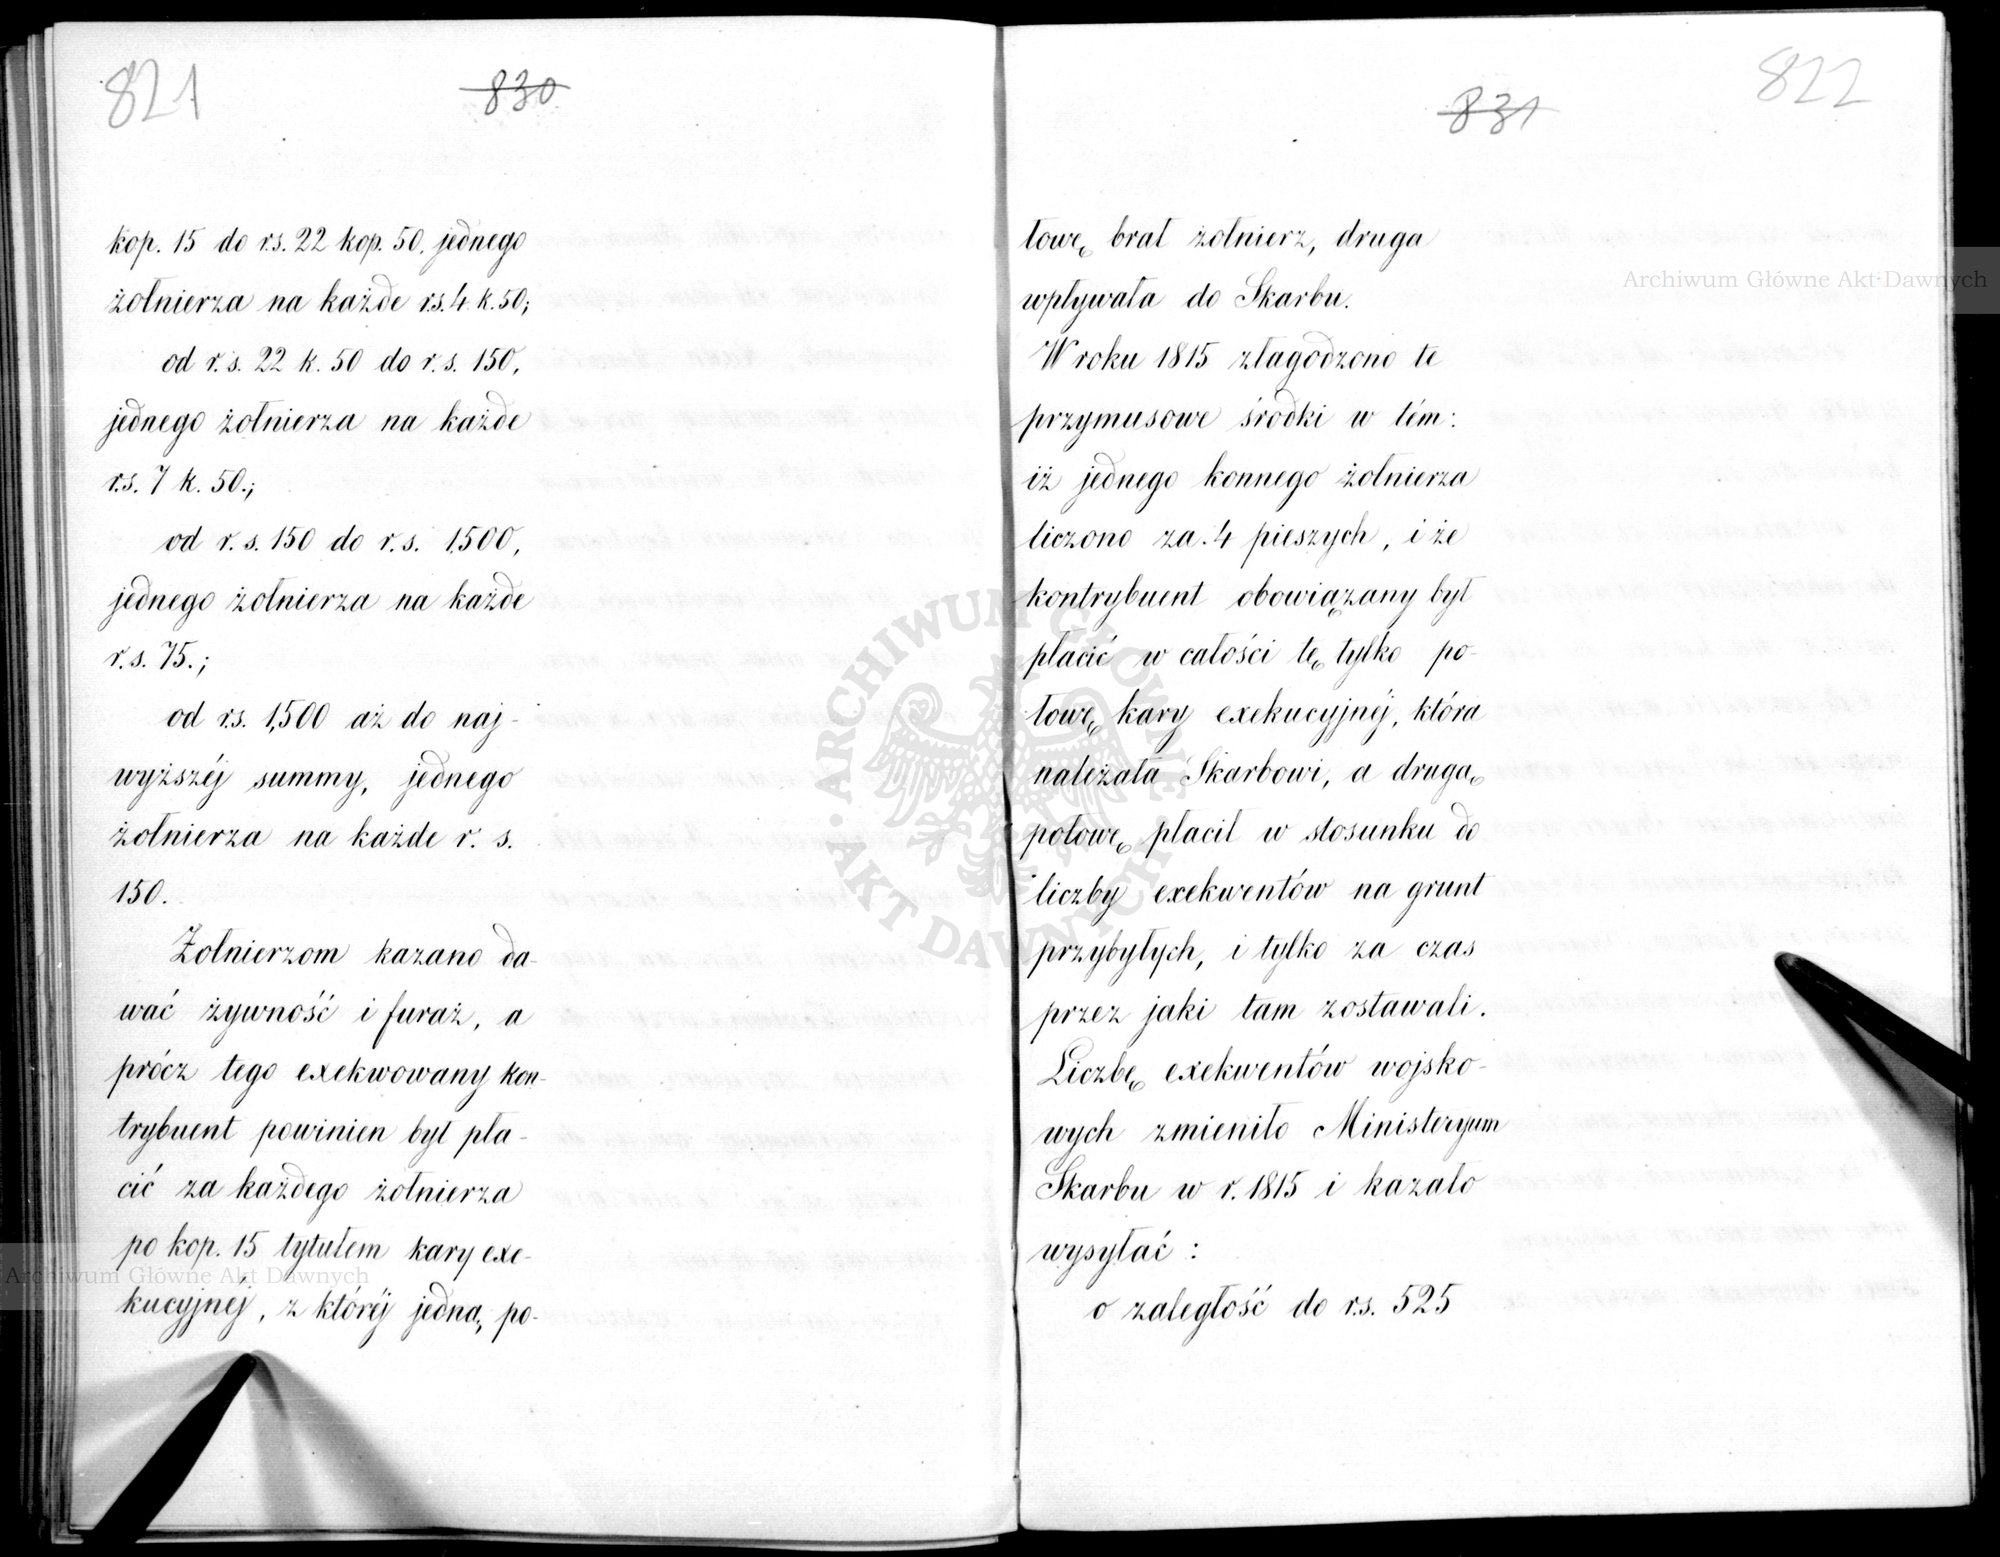 821
830
kop. 15 do rs. 22 kop. 50. jednego
żołnierza na każde r.s. 4 k. 50;
od r. s. 22 k. 50 do r. s. 150,
jednego żołnierza na każde
r.s. 7 k. 50.;
od r. s. 150 do r. s. 1500,
jednego żołnierza na każde
r. s. 75.;
od rs. 1,500 aż do naj-
wyższéj summy, jednego
żołnierza na każde r. s.
150.
Żołnierzom kazano da-
wać żywność i furaż, a
prócz tego exekwowany kon-
trybuent powinien był pła-
cić za każdego żołnierza
po kop. 15 tytułem kary exe-
kucyjnéj, z któréj jedną po-
831
822
łowę brał żołnierz, druga
wpływała do Skarbu.
W roku 1815 złagodzono te
przymusowe środki w tém:
iż jednego konnego żołnierza
liczono za 4 pieszych, i że
kontrybuent obowiązany był
płacić w całości tę tylko po-
łowę kary exekucyjnéj, która
należała Skarbowi, a drugą
połowę płacił w stosunku do
liczby exekwentów na grunt
przybyłych, i tylko za czas
przez jaki tam zostawali.
Liczbę exekwentów wojsko-
wych zmieniło Ministeryum
Skarbu w r. 1815 i kazało
wysyłać :
o zaległość do rs. 525
Archiwum Główne Akt Dawnych
Archiwum Główne Akt Dawnych
ARCHIWUM GŁÓWNE
AKT DAWNYCH